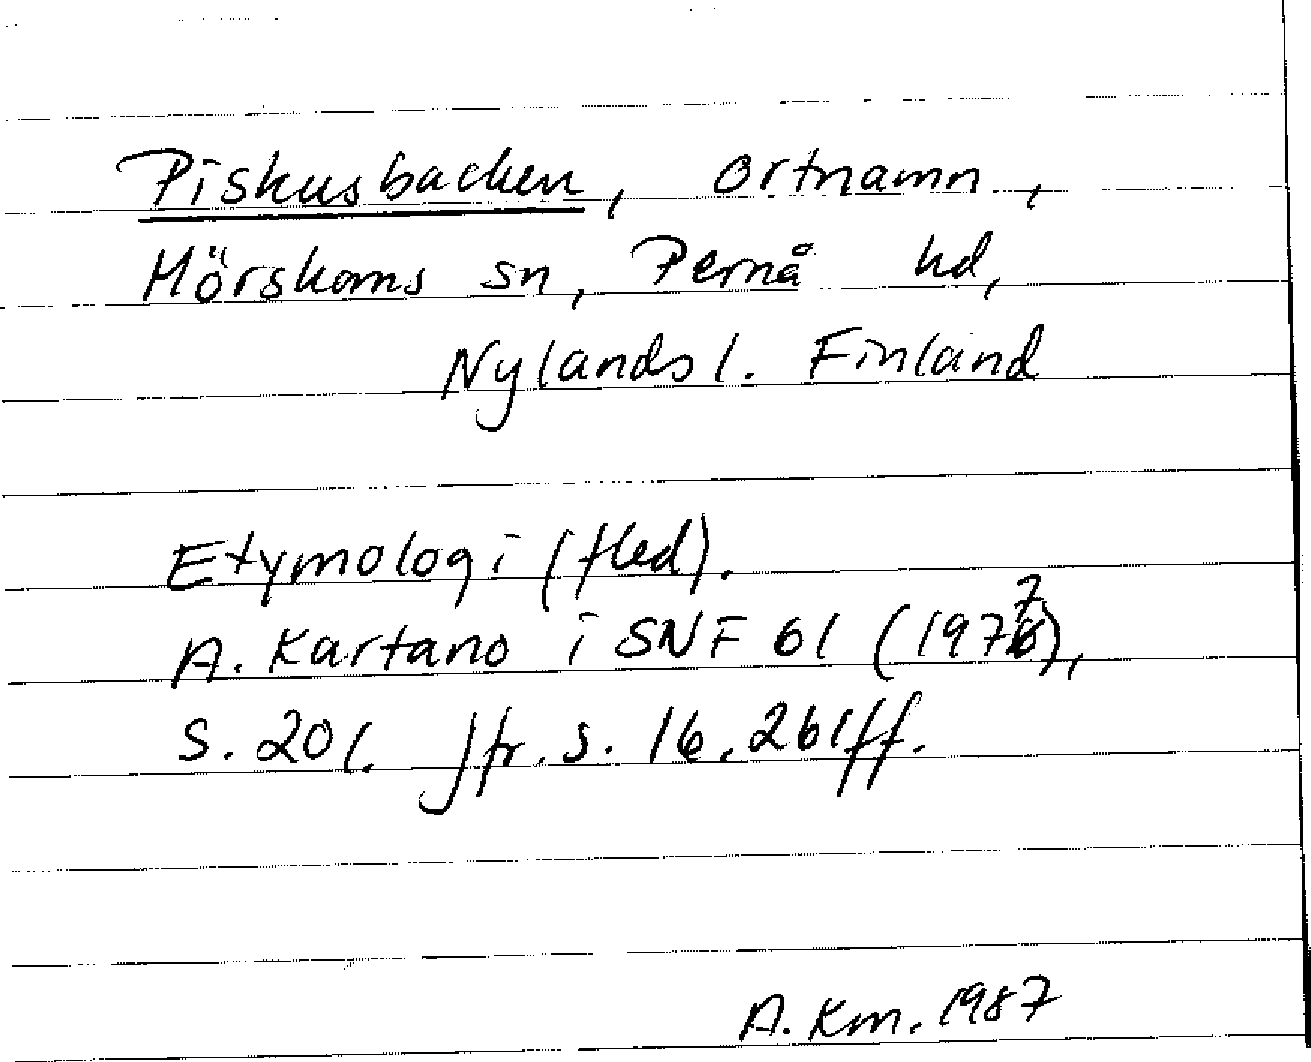 Piskusbacken, ortnamn,
Mörskoms sn, Pernå hd,
Nylands l. Finland
Etymologi (fled).
A. Kartano i SNF 61 (1977),
s. 20f. Jfr. s. 16. 261ff.
A. Km. 1987